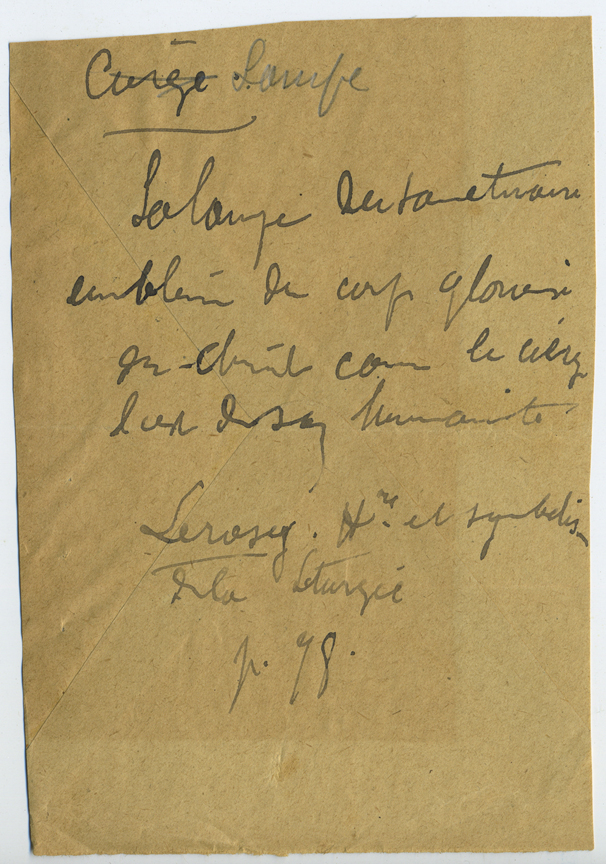 Cierge Lampe
La lampe du sanctuaire
emblème du corps glorieux
du Christ comme le cierge
l'est de son humanité
Lerosey. Hre et symbolis
de la Liturgie
p. 98.